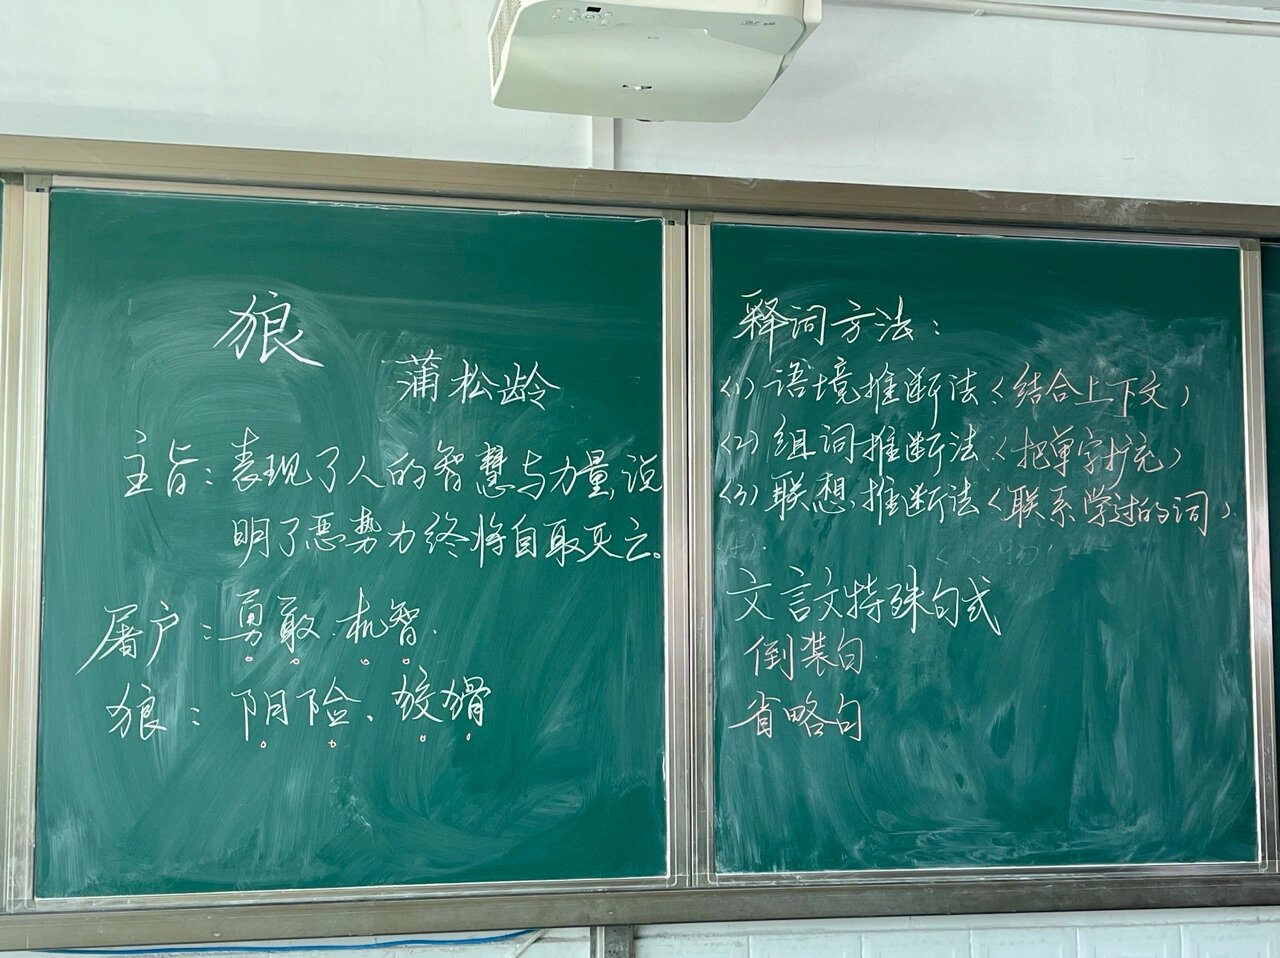 狼
蒲松龄
主旨：表现了人的智慧与力量，说
明了恶势力终将自取灭亡。
屠户：勇敢、机智.
狼：阴险、狡猾
释词方法：
(1)语境推断法(结合上下文)
(2)组词推断法(把单字扩充)
(3)联想推断法(联系学过的词)
文言文特殊句式
倒装句
省略句